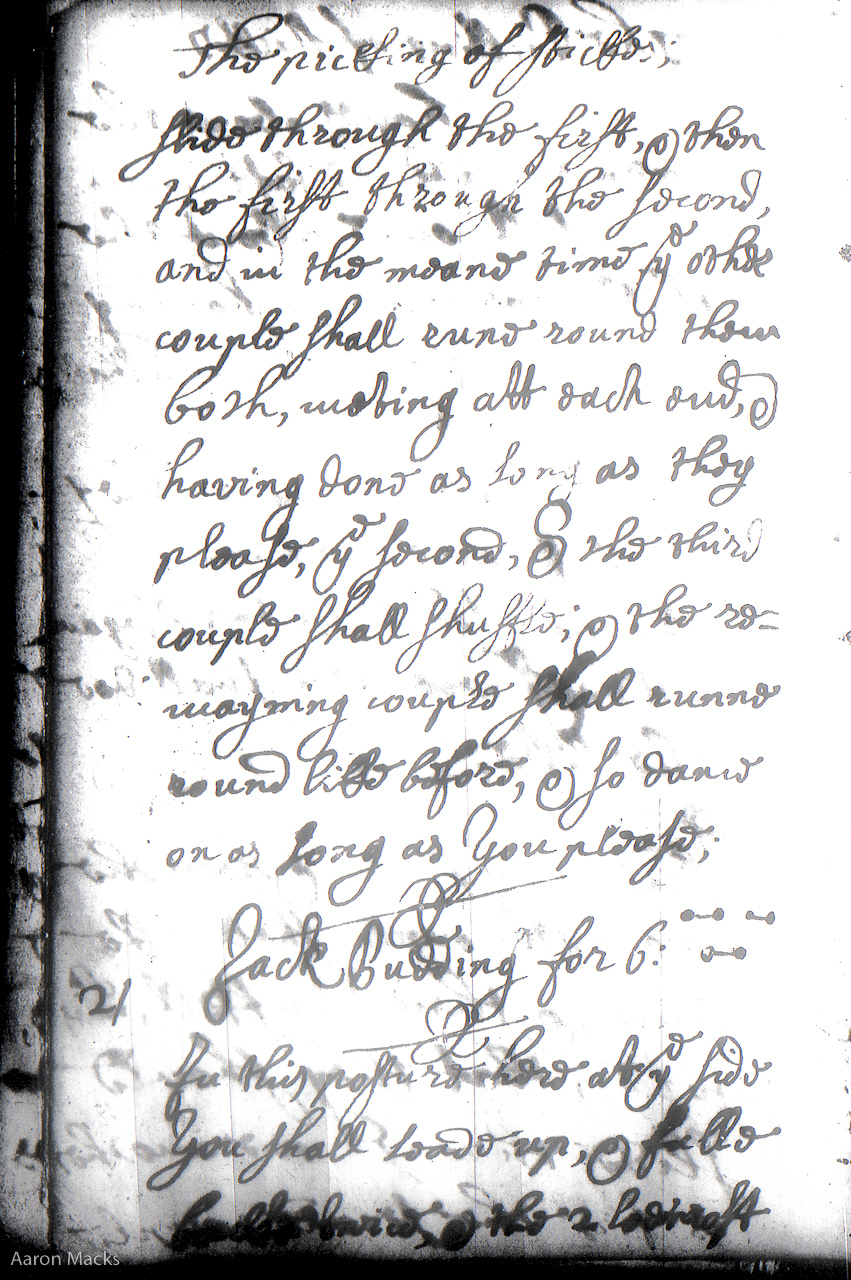 The picking of stickes;
slide through the first, & then
the first through the second,
and in the meane time ye other
couple shall rune round them
both, meting att each end, &
having done as long as they
please, ye second, & the third
couple shall shuffle; & the re-
mayning couple shall runne
round like before, & so dance
on as long as You please;
Jack Pudding for 6:
2/
In this posture here at ye side
You shall leade up, & falle
backe twice, & the 2
Aaron Macks